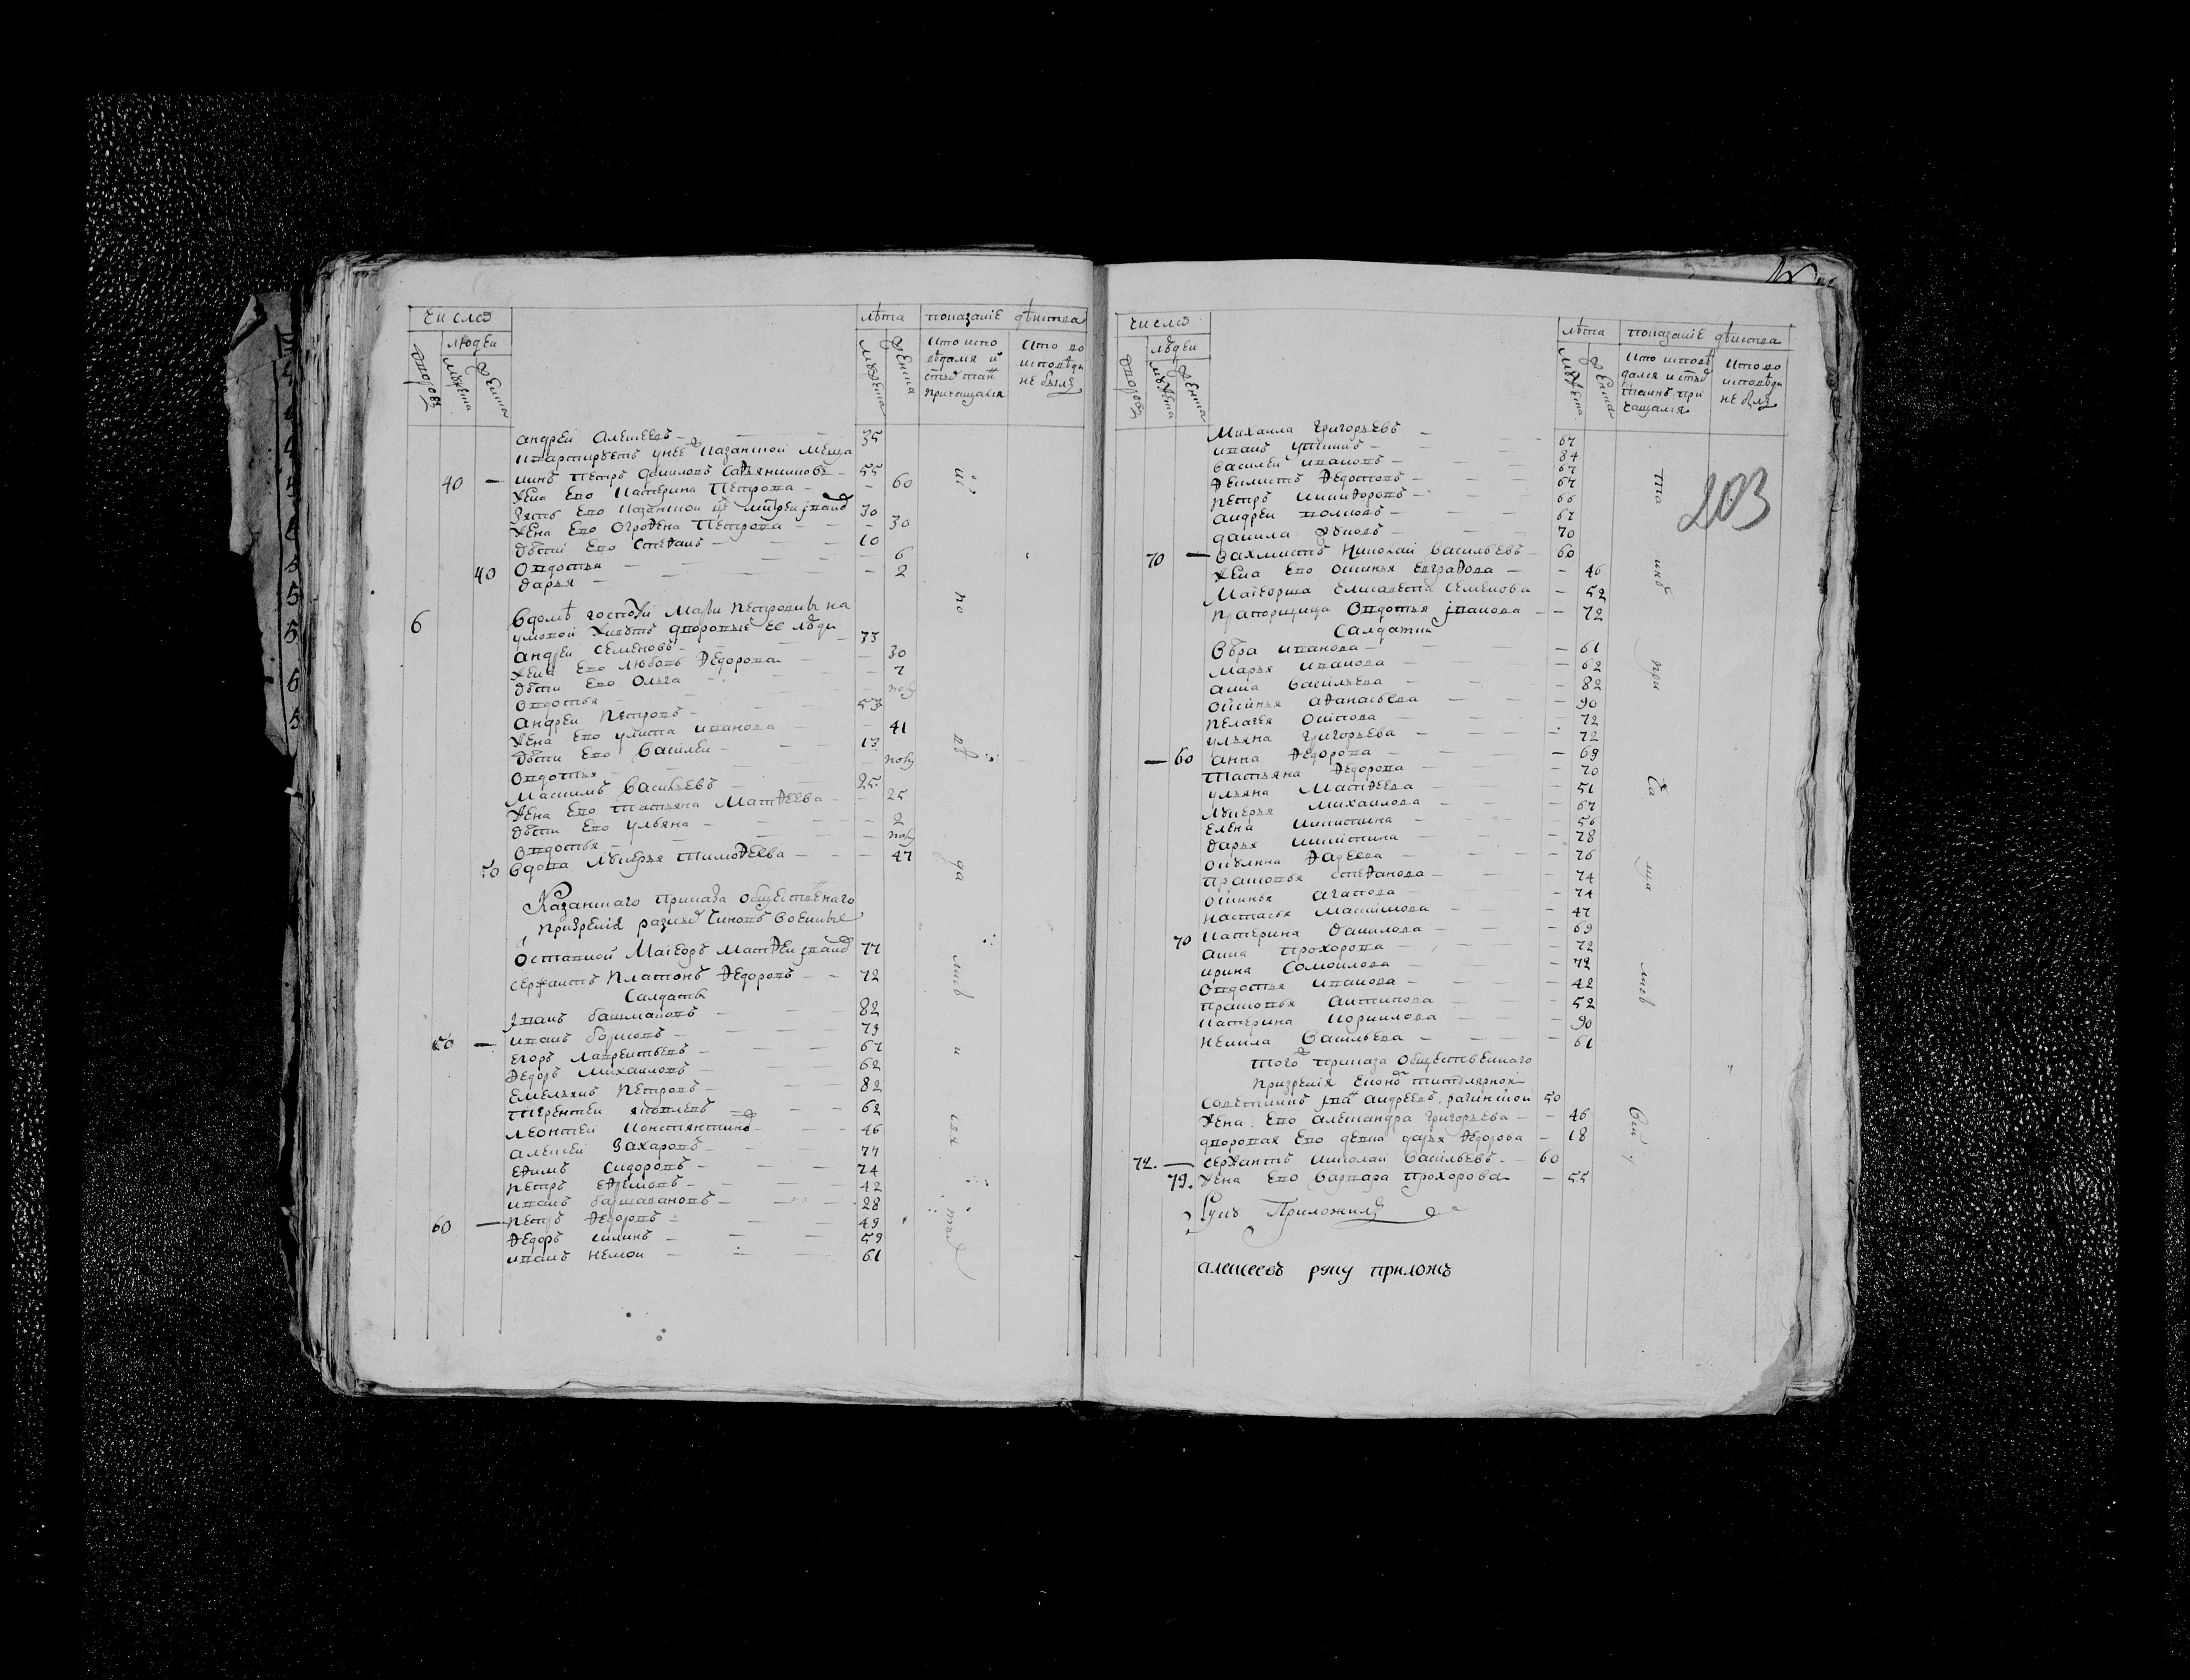 число
людей
дворовъ
мужеска
женска
лѣта
мужеска
женска
показаніе дѣиства
кто испо
вѣдался и
стых таи
причащался
кто во
исповѣди
не былъ
андреи алеѯеевъ 35
квартируетъ у нее казанской меща
40 нинъ петръ даниловъ 55
жена ево катерина петрова 60
зять ево казанской 30
жена ево огрофена петрова 30
дѣти ево стефанъ 10
овдотья 6
40 дарья 2
6 вдомѣ госпожи петровны на
живутъ дворовые ее люди
андреи семеновъ 33
жена ево любовь федорова 30
дѣти ево ольга 2
овдотья полу
андреи петровъ 53
жена ево улита иванова 41
дѣти ево василеи 13
овдотья полу
максимъ васильевъ 25
жена ево татьяна матфеева 25
дѣти ево ульяна 2
овдотья полу
50 вдова лукерья тимофеева 47
Казанскаго приказа общественаго
призренія разных чиновъ военные
отставной маіеоръ матфеи 77
сержантъ платонъ федоровъ 72
салдаты
іванъ башмаковъ 82
50 иванъ 79
егоръ лаврентьевъ 67
федоръ михаиловъ 62
емельянъ петровъ 82
терентеи яковлевъ 62
леонтеи константино 46
алеѯеи захаровъ 77
ефимъ сидоровъ 74
петръ ефремовъ 42
иванъ 28
60 петръ федоровъ 49
федоръ силинъ 59
иванъ немои 61
и
по
вѣ
да
лись
и
свя
тых
число
людей
дворовъ
мужеска
женска
лѣта
мужеска
женска
показаніе дѣиства
кто исповѣ
дался и стых
таинъ при
чащался
кто во
исповѣди
не былъ
203
михаила григорьевъ 67
иванъ 84
василеи ивановъ 67
федотовъ 67
петръ никифоровъ 66
андреи волковъ 67
данила 70
70 вахмистъ николаи васильевъ 60
жена ево оксинья евграфова 46
маіеорша елисавета семенова 52
прапорщица овдотья іванова 72
салдатки
вѣра иванова 61
марья иванова 62
анна васильева 82
оксинья афанасьева 90
пелагея осипова 72
ульяна григорьева 72
60 анна федорова 69
татьяна федорова 70
ульяна матфеева 51
лукерья михаилова 67
елена никитина 56
дарья никитина 78
окулина фадеева 76
прасковья стефанова 74
оксинья агапова 74
настасья максимова 47
70 катерина данилова 69
анна прохорова 72
ирина самоилова 72
овдотья иванова 42
прасковья антипова 52
катерина корнилова 90
ненила васильева 61
того приказа общественнаго
призренія титулярной
советникъ андреевъ 50
жена ево алеѯандра григорьева 46
дворовая ево девка дарья федорова 18
72. сержантъ николаи васильевъ 60
79. жена ево варвара прохорова 55
та
инъ
при
ча
ща
лись
Руку Приложилъ
алексеевъ руку приложъ